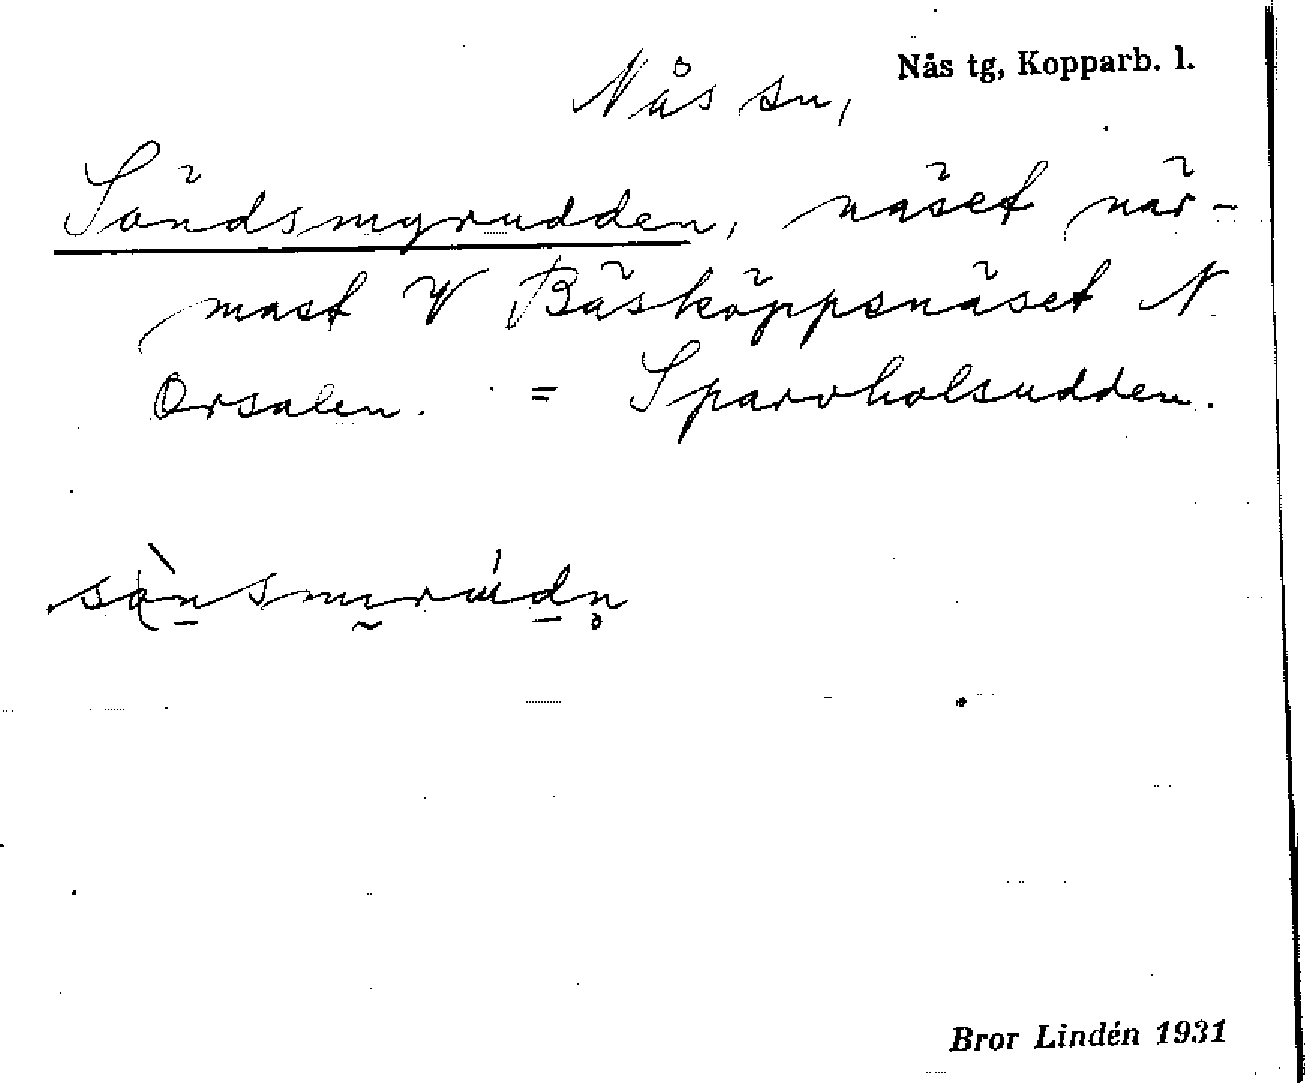 Nås tg, Kopparb. l.
Nås sn,
Söndsmyrudden, näset när-
mast V Bäsköppsnäset N
Orsalen. = Sparvholsudden.
Bror Lindén 1931